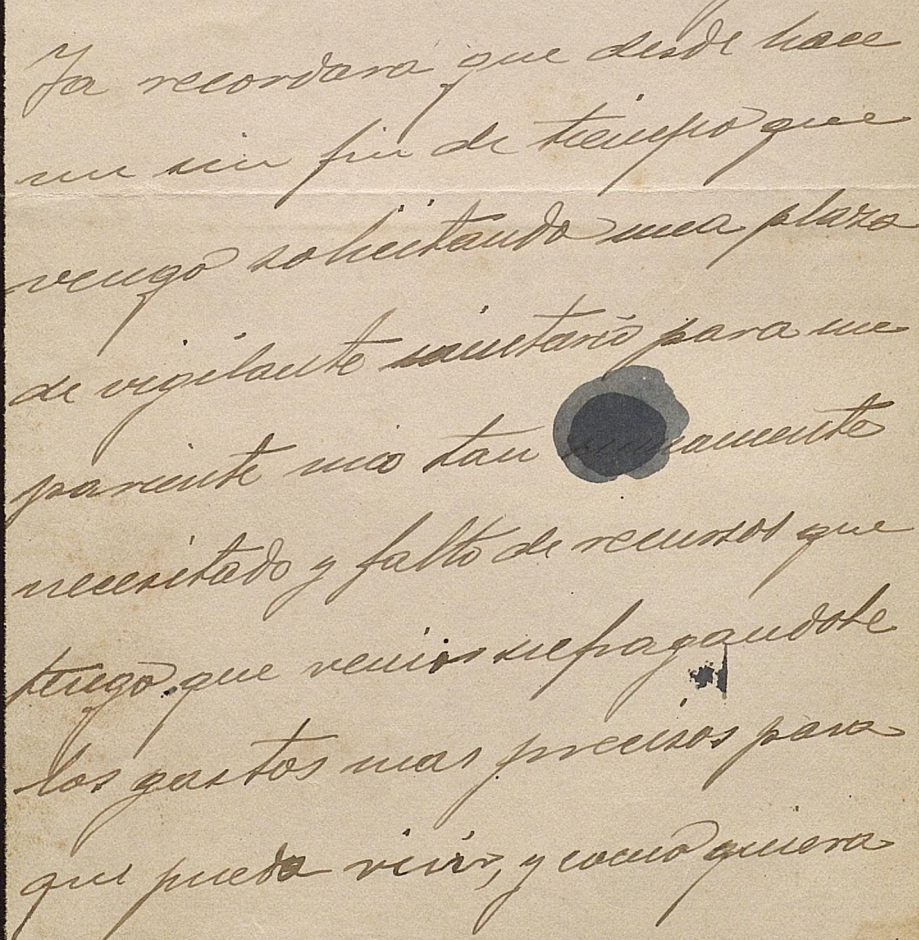 Ya recordara que desde hace
un sin fin de tiempo que
vengo solicitando una plaza
de vigilante sanitario para un
pariente mio tan sumamente
necesitado y falto de recursos que
tengo que venir sufragandole
los gastos mas precisos para
que pueda vivir, y como quiera